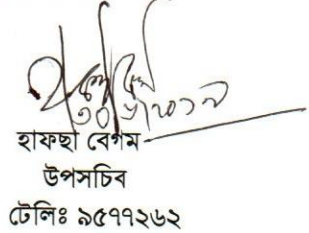 হাফছা বেগম
উপসচিব
টেলিঃ ৯৫৭৭২৬২